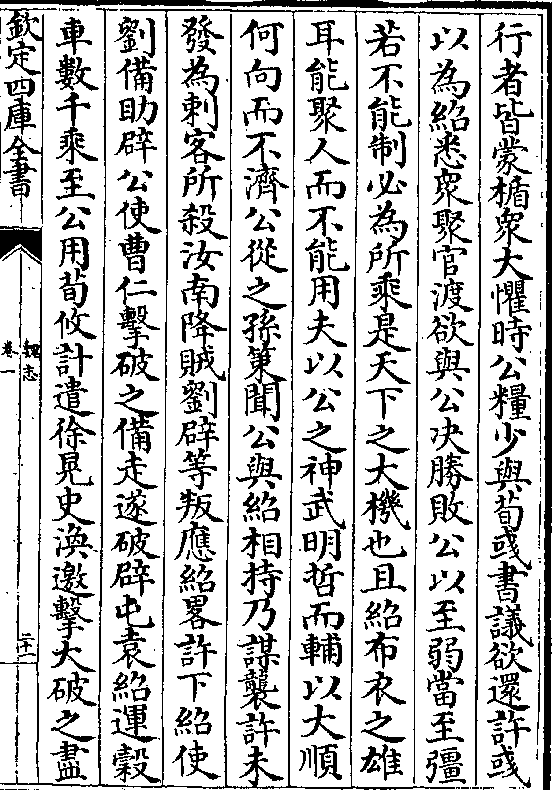 行者皆蒙楯衆大懼時公糧少與荀彧書議欲還許彧
以為紹悉衆聚官渡欲與公決勝敗公以至弱當至彊
若不能制必為所乘是天下之大機也且紹布衣之雄
耳能聚人而不能用夫以公之神武明哲而輔以大順
何向而不濟公從之孫策聞公與紹相持乃謀襲許未
發為刺客所殺汝南降賊劉辟等叛應紹畧許下紹使
劉備助辟公使曹仁擊破之備走遂破辟屯袁紹運穀
車數千乘至公用荀攸計遣徐晃史渙邀擊大破之盡
欽定四庫全書
魏志
卷一
二十一